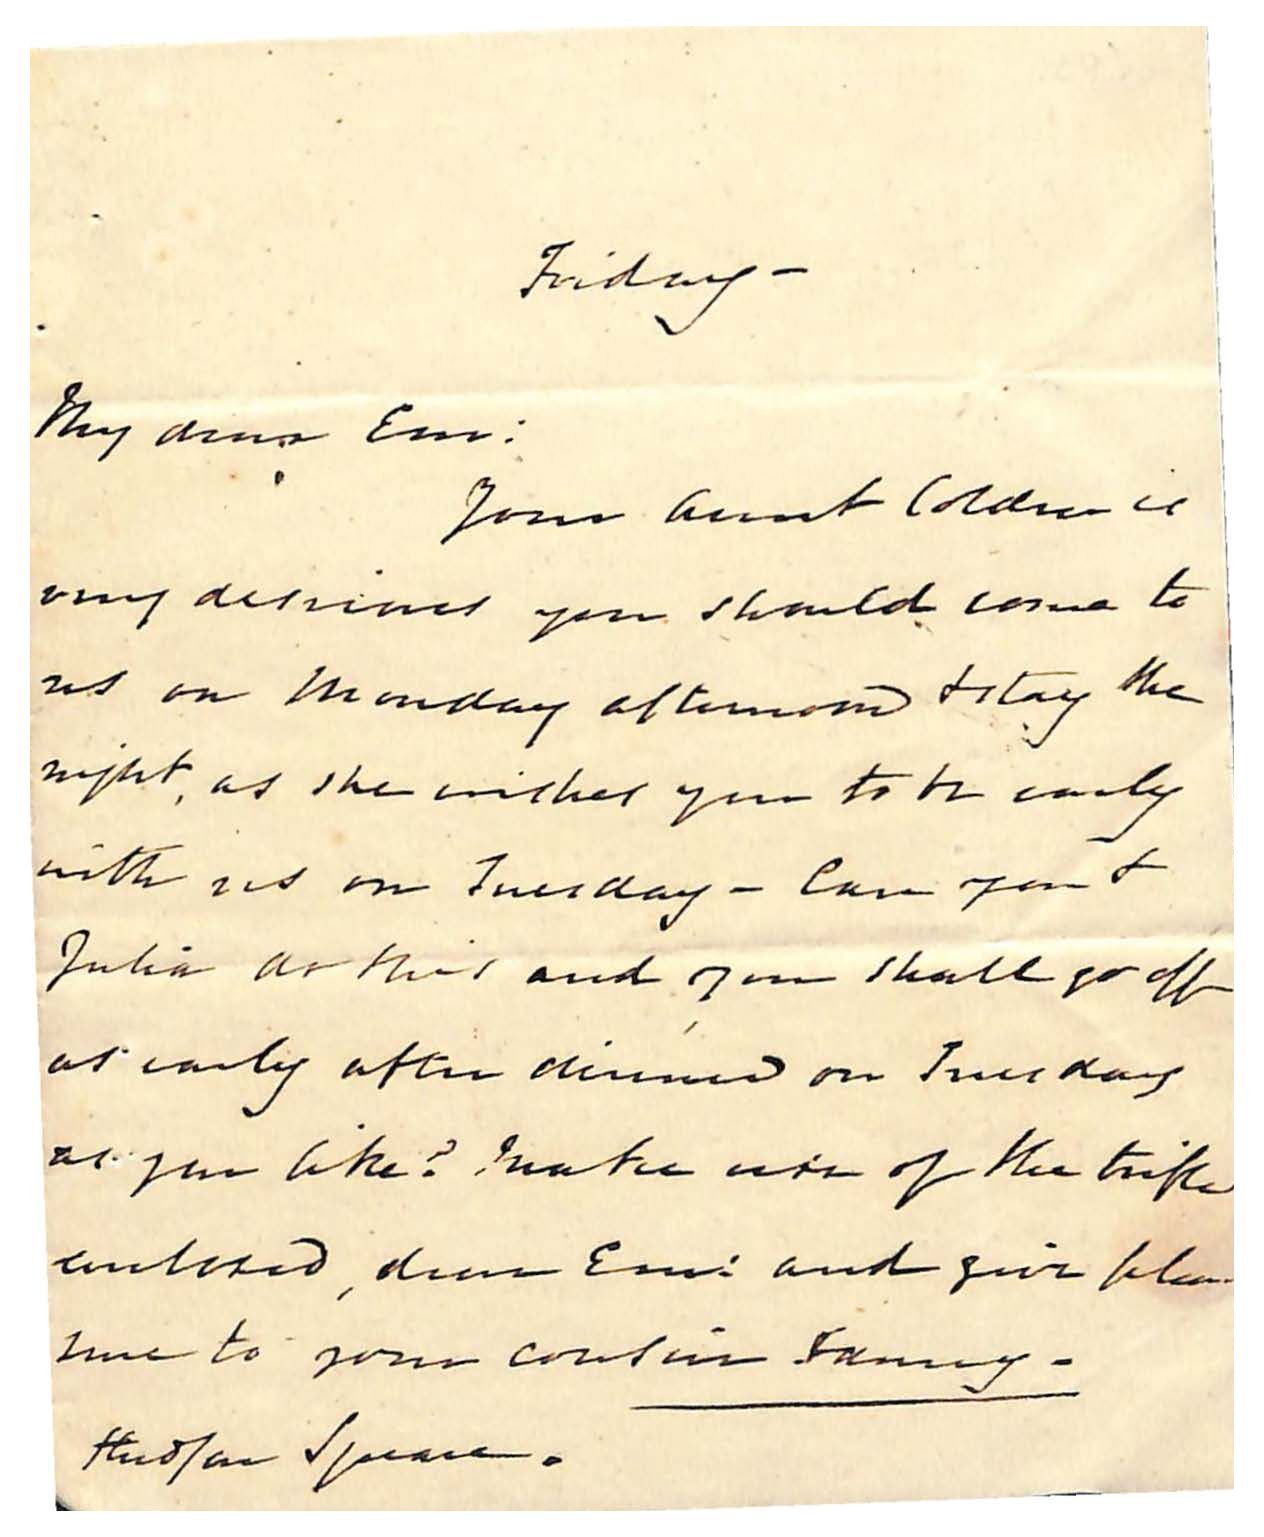 Friday –
My dear Em:
Your Aunt Colden is
very desirous you should come to
us on Monday afternoon & stay the
night, as she wishes you to be early
with us on Tuesday – Can you &
Julia do this and you shall go off
as early after dinner on Tuesday
as you like? Make use of the trifle
enclosed, dear Em: and give plea-
sure to your cousin Fanny –
Hudson Square.